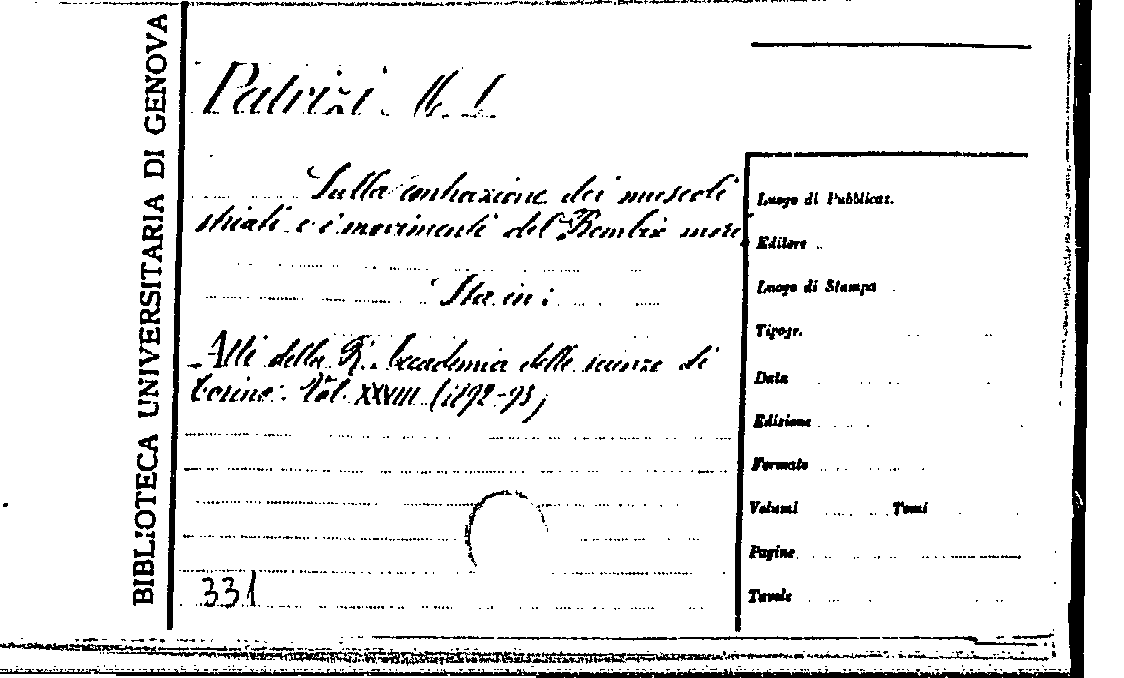 BIBLIOTECA UNIVERSITARIA DI GENOVA
Patrizi M. L.
Sulla contrazione dei muscoli
striati e i movimenti del Bombix mori
Sta in:
Atti della R. Accademia delle scienze di
Torino. Vol. XXVIII (1892-93)
331
Luogo di Pubblicaz.
Editore
Luogo di Stampa
Tipogr.
Data
Edizione
Formato
Volumi Tomi
Pagine
Tavole